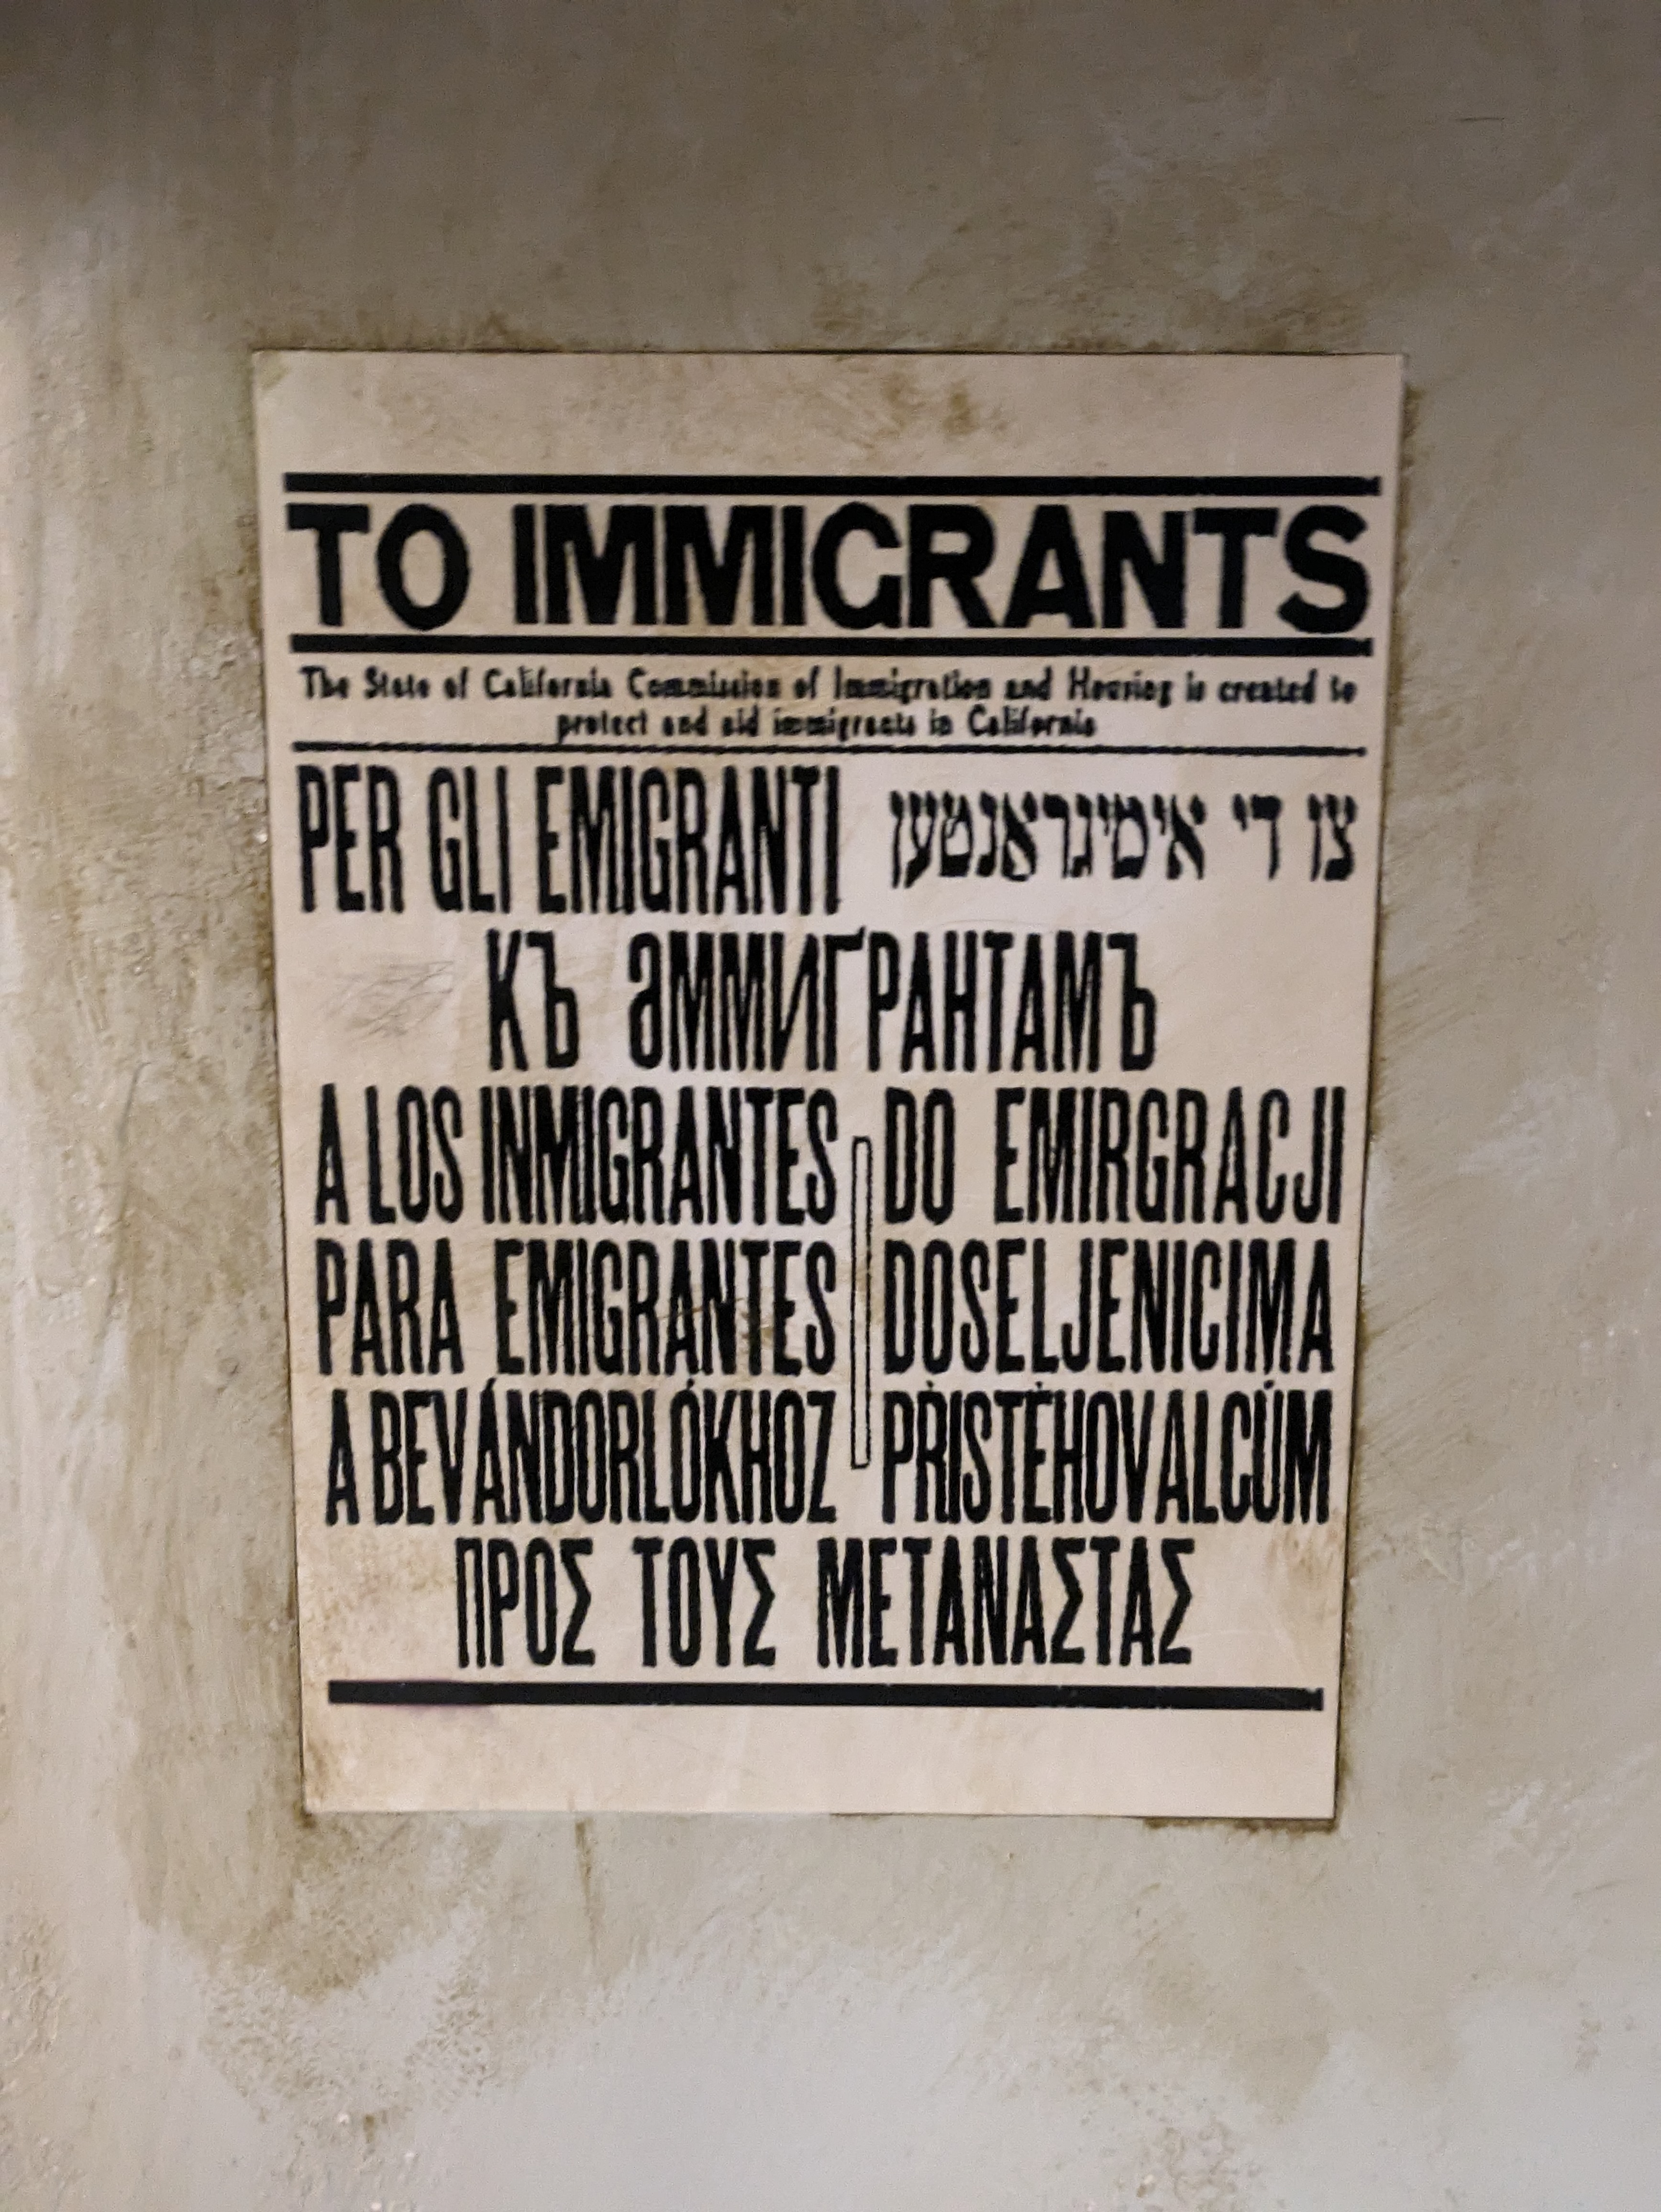 TO IMMIGRANTS
The State of California Commission of Immigration and Housing is created to
protect and aid immigrants in California
PER GLI EMIGRANTI
צו די אימיגראנטען
КЪ ƏММИГРАНТАМЪ
A LOS INMIGRANTES
DO EMIRGRACJI
PARA EMIGRANTES
DOSELJENICIMA
A BEVÁNDORLÓKHOZ
PŘISTĚHOVALCŮM
ΠΡΟΣ ΤΟΥΣ ΜΕΤΑΝΑΣΤΑΣ